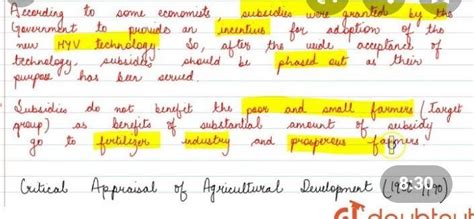 According to some economists, subsidies were granted by the
Government to provide an incentive for adoption of the
new HYV technology. So, after the wide acceptance of
technology, subsidies should be phased out as their
purpose has been served.
Subsidies do not benefit the poor and small farmers (Target
group) as benefits of substantial amount of subsidy
go to fertilizer industry and prosperous farmers.
Critical Appraisal of Agricultural Development (
8:30
doubtnut